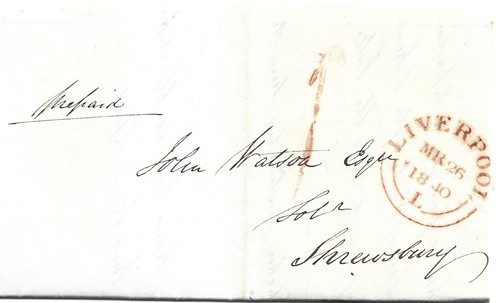 prepaid
1
John Watson Esqre
Solr
Shrewsbury
LIVERPOOL
MR 26
1840
L